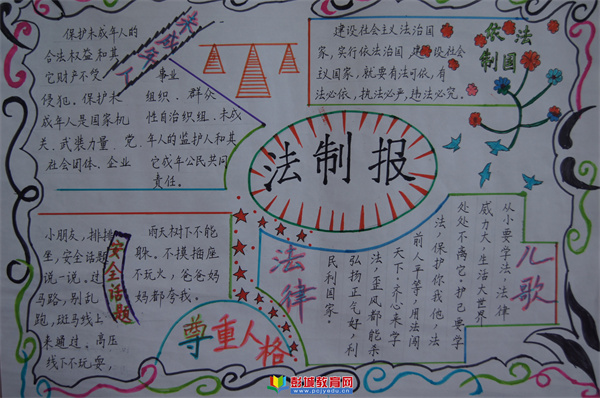 未成年人
保护未成年人的
合法权益和其
它财产不受
侵犯。保护未
成年人是国家机
关、武装力量、党、
社会团体、企业
事业
组织、群众
性自治组织、未成
年人的监护人和其
它成年公民共同
责任。
建设社会主义法治国
家,实行依法治国,建设社会
主义国家,就要有法可依,有
法必依,执法必严,违法必究。
依法
制国
法制报
小朋友,排排
坐,安全话题
说一说。过
马路,别乱
跑,斑马线上
来通过。高压
线下不玩耍,
安全话题
雨天树下不能
躲。不摸插座
不玩火,爸爸妈
妈都夸我。
尊重人格
法律
儿歌
从小要学法,法律
威力大,生活大世界
处处不离它。护己要学
法,保护你我他,法
前人平等,用法闯
天下,齐心来学
法,歪风都能杀
弘扬正气好,利
民利国家。
彭城教育网
www.pcjyedu.cn